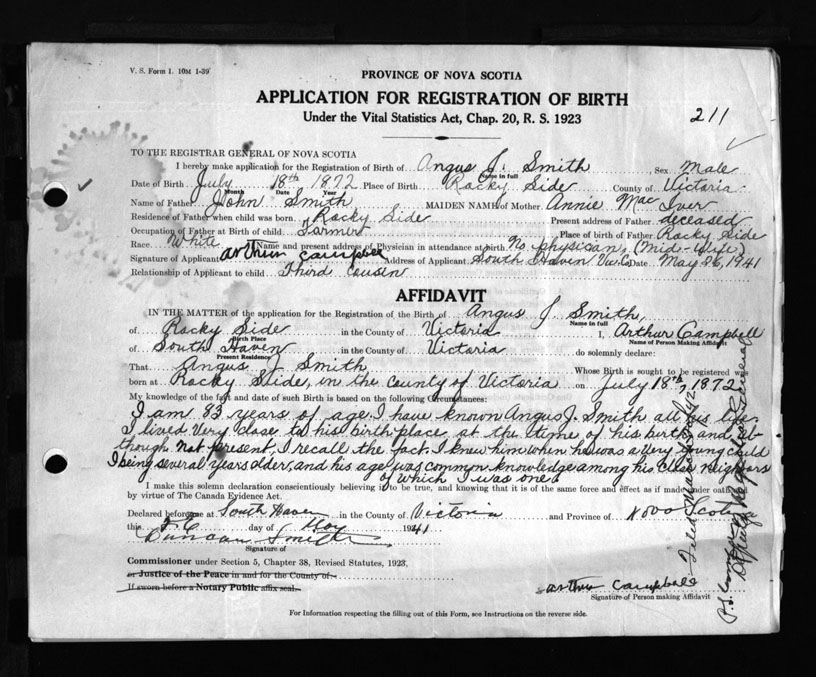 V. S. Form 1. 10M 1-39
PROVINCE OF NOVA SCOTIA
APPLICATION FOR REGISTRATION OF BIRTH
Under the Vital Statistics Act, Chap. 20, R. S. 1923
211
TO THE REGISTRAR GENERAL OF NOVA SCOTIA
I hereby make application for the Registration of Birth of Angus J. Smith Sex Male
Name in full
Date of Birth July 18th 1872 Place of Birth Rocky Side County of Victoria
Month Date Year
Name of Father John Smith MAIDEN NAME of Mother Annie Mac Iver
Residence of Father when child was born Rocky Side Present address of Father deceased
Occupation of Father at Birth of child Farmer Place of birth of Father Rocky Side
Race White Name and present address of Physician in attendance at birth No physican (Mid-Wife)
Signature of Applicant arthur campbell Address of Applicant South Haven Vic. Co Date May 26, 1941
Relationship of Applicant to child Third Cousen
AFFIDAVIT
IN THE MATTER of the application for the Registration of the Birth of Angus J. Smith,
Name in full
of Rocky Side in the County of Victoria I, Arthur Campbell
Birth Place Name of Person Making Affidavit
of South Haven in the County of Victoria do solemnly declare:
Present Residence
That Angus J Smith Whose Birth is sought to be registered was
born at Rocky Side, in the county of Victoria on July 18th, 1872
My knowledge of the fact and date of such Birth is based on the following Circumstances:
I am 83 years of age. I have known Angus J. Smith all his life.
I lived Very close to his birthplace at the time of his birth and al-
though not present, I recall the fact. I knew him when he was a very young child
I being several years older, and his age was common knowledge among his close neighbors
of which I was one
I make this solemn declaration conscientiously believing it to be true, and knowing that it is of the same force and effect as if made under oath and
by virtue of The Canada Evidence Act.
Declared before me at South Haven in the County of Victoria and Province of Nova Scotia
this 26 day of May 1941
Duncan Smith
Signature of
Commissioner under Section 5, Chapter 38, Revised Statutes, 1923,
or Justice of the Peace in and for the County of
If sworn before a Notary Public affix seal.
arthur Campbell
Signature of Person making Affidavit
For Information respecting the filling out of this Form, see Instructions on the reverse side.
Deputy Registrar General